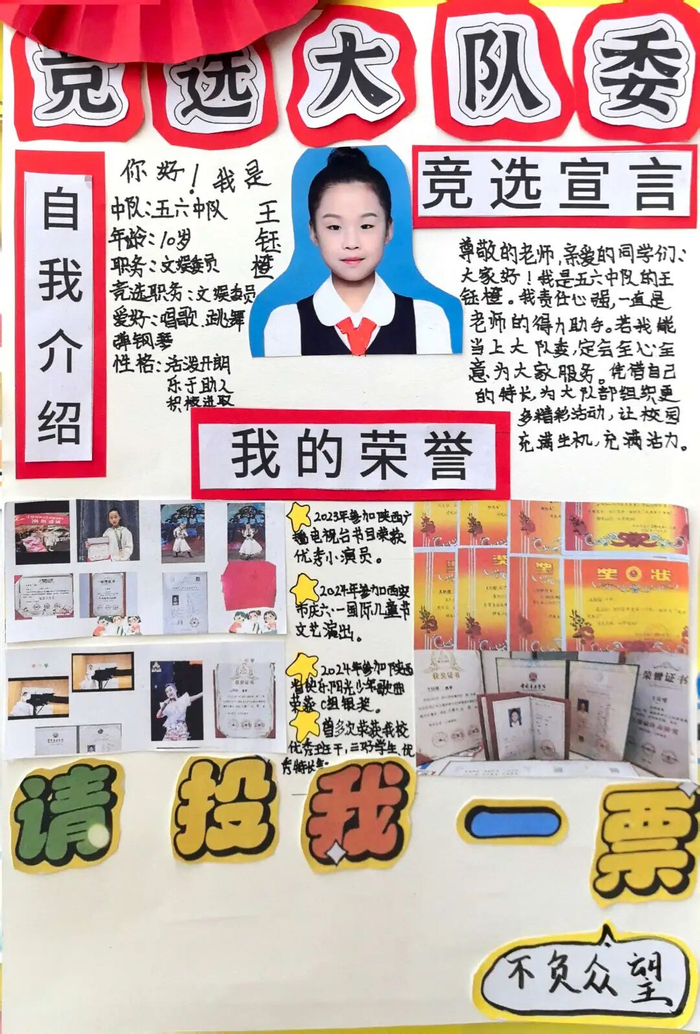 竞选大队委
自我介绍
你好！我是
王钰楂
中队：五六中队
年龄：10岁
职务：文娱委员
竞选职务：文娱委员
爱好：唱歌、跳舞
弹钢琴
性格：活泼开朗
乐于助人
积极进取
竞选宣言
尊敬的老师，亲爱的同学们：
大家好！我是五六中队的王
钰楂。我责任心强，一直是
老师的得力助手。若我能
当上大队委，定会全心全
意为大家服务。凭借自己
的特长，为大队部组织更
多精彩活动，让校园
充满生机，充满活力。
我的荣誉
2023年参加陕西广
播电视台节目荣获
优秀小演员。
2024年参加西安
市庆六一国际儿童节
文艺演出。
2024年参加陕西
省快乐阳光少年歌曲
荣获C组银奖。
曾多次荣获我校
优秀班干，三好学生，优
秀特长生。
奖状
荣誉证书
请投我一票
不负众望